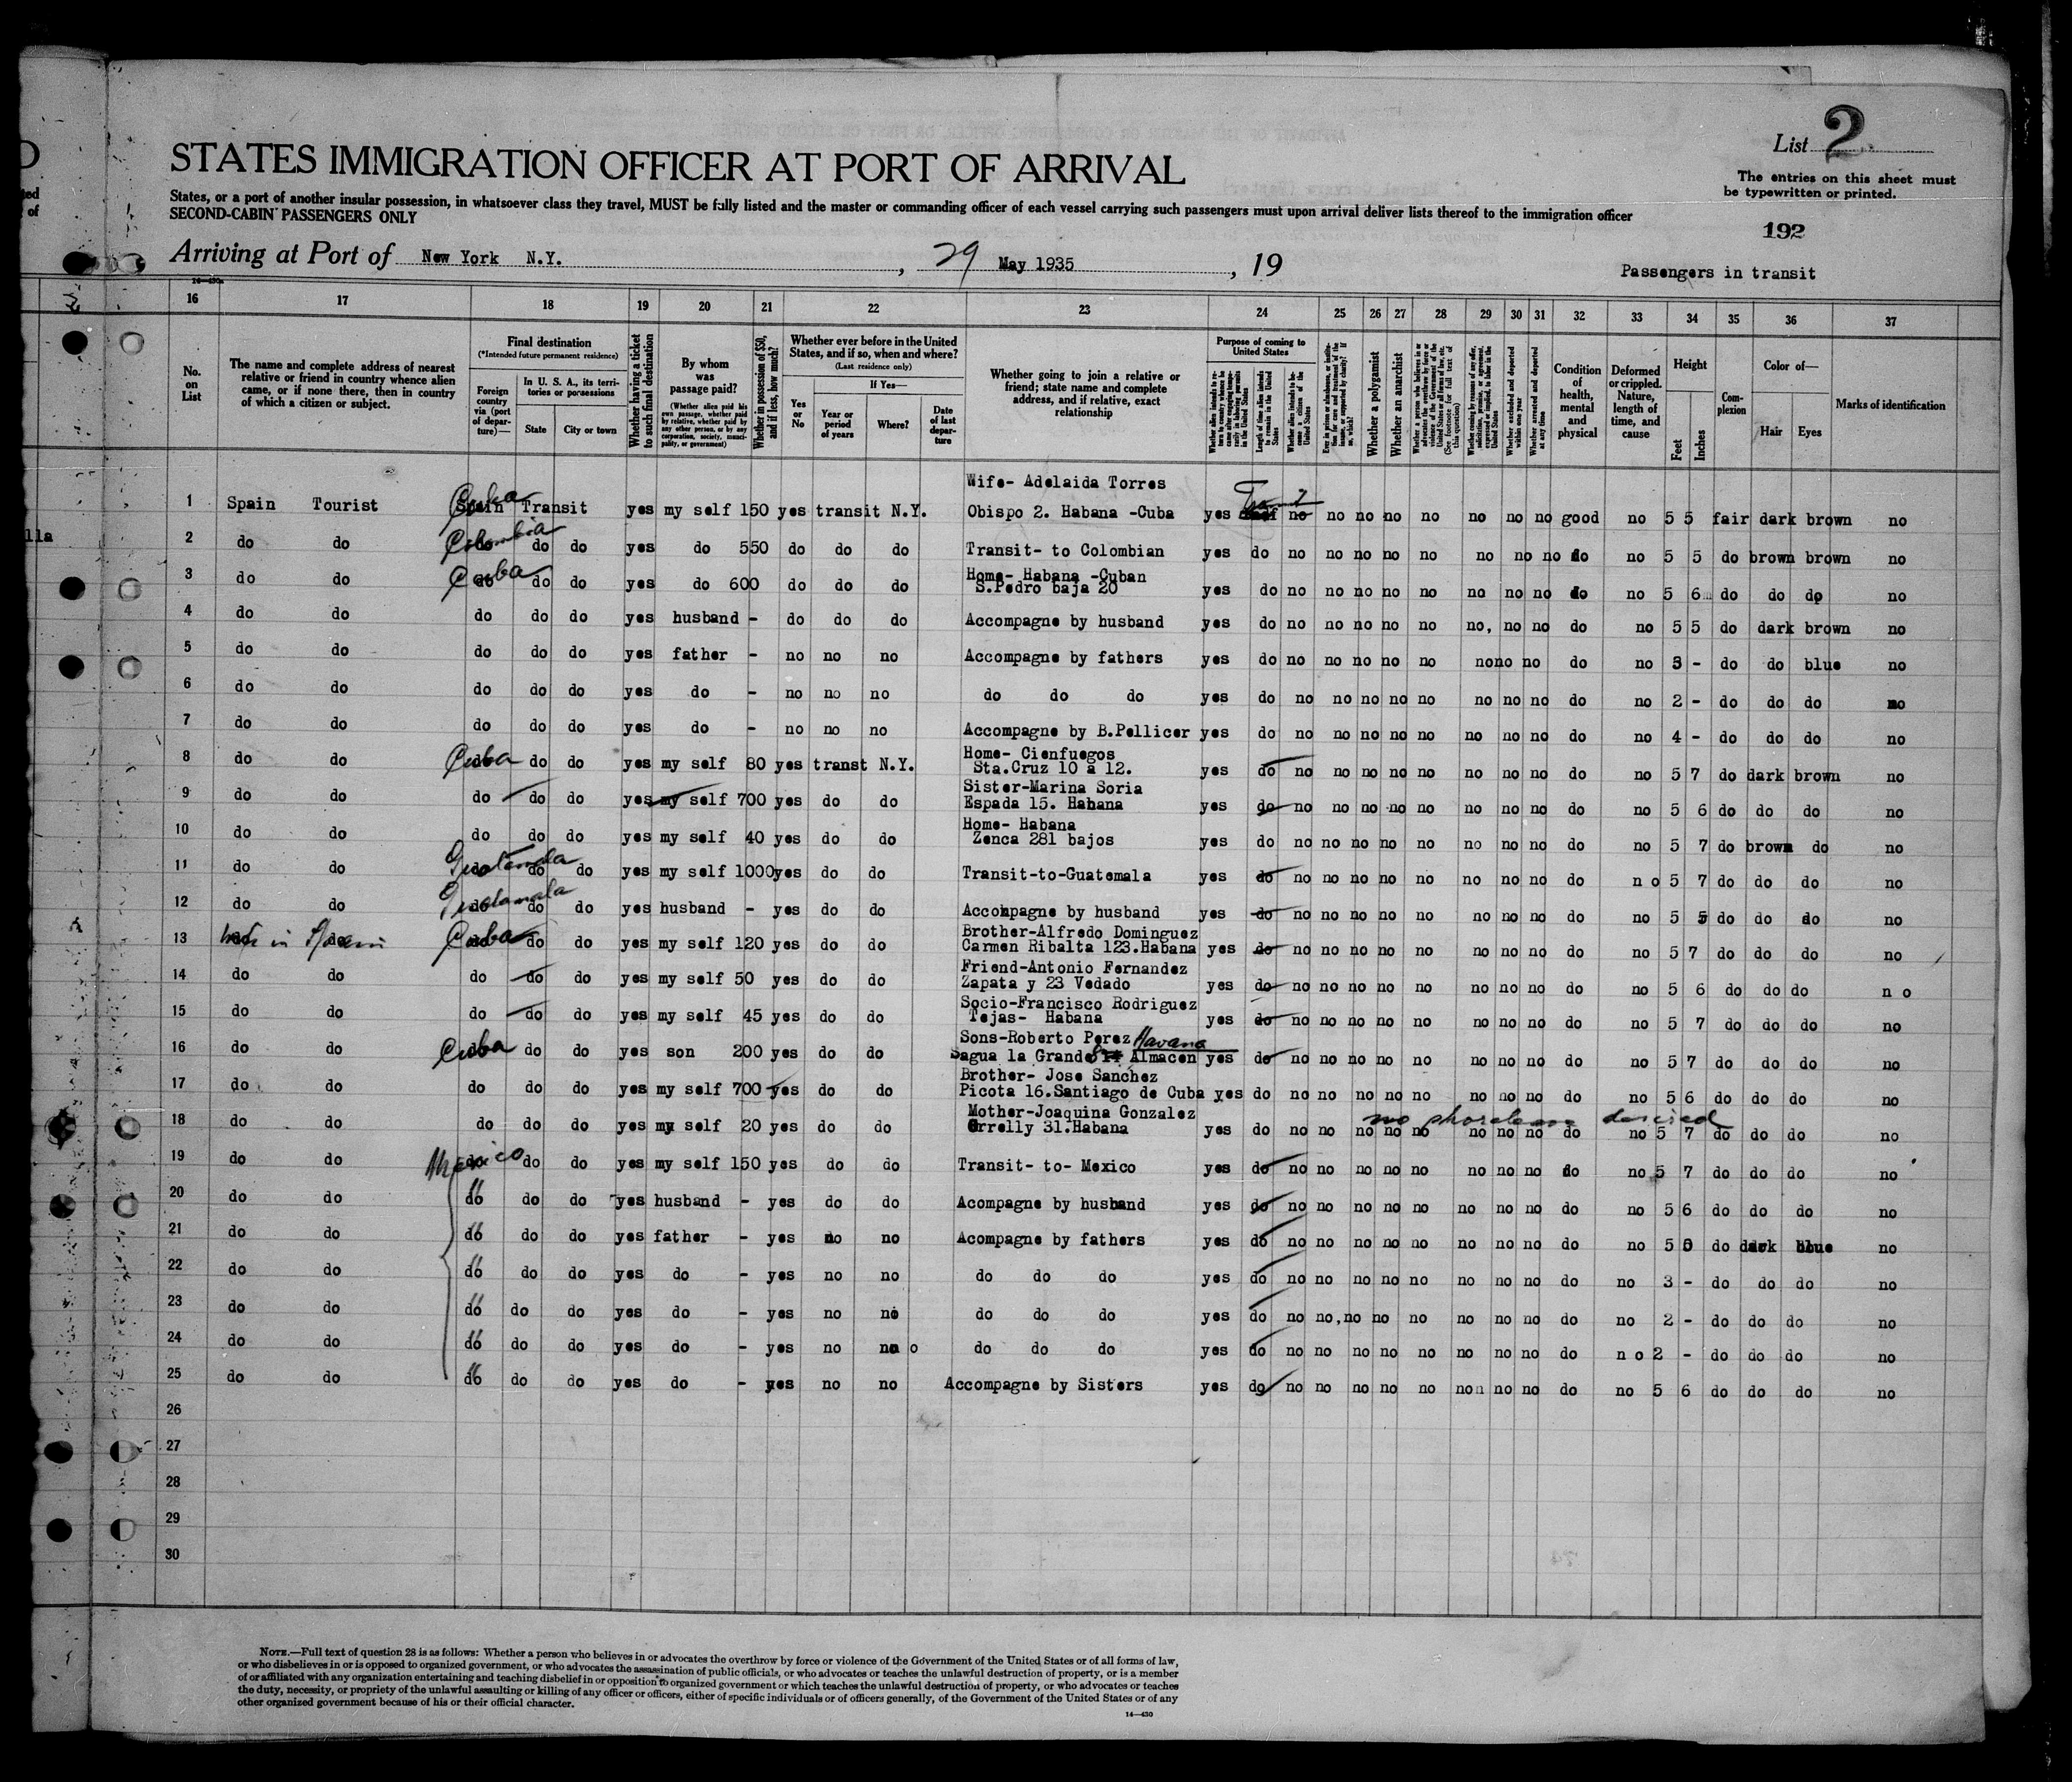 List 2
STATES IMMIGRATION OFFICER AT PORT OF ARRIVAL
The entries on this sheet must
be typewritten or printed.
States, or a port of another insular possession, in whatsoever class they travel, MUST be fully listed and the master or commanding officer of each vessel carrying such passengers must upon arrival deliver lists thereof to the immigration officer
SECOND-CABIN PASSENGERS ONLY
192
Arriving at Port of New York N.Y., 29 May 1935, 19
Passengers in transit
16 17 18 19 20 21 22 23 24 25 26 27 28 29 30 31 32 33 34 35 36 37
No. on List
The name and complete address of nearest
relative or friend in country whence alien
came, or if none there, then in country
of which a citizen or subject.
Final destination
(*Intended future permanent residence)
Foreign country via (port of departure)—
In U. S. A., its territories or possessions
State
City or town
Whether having a ticket to such final destination
By whom was passage paid?
(Whether alien paid his own passage, whether paid by relative, whether paid by any other person, or by any corporation, society, municipality, or government)
Whether in possession of $50, and if less, how much?
Whether ever before in the United States, and if so, when and where?
(Last residence only)
Yes or No
If Yes—
Year or period of years
Where?
Date of last departure
Whether going to join a relative or
friend; state name and complete
address, and if relative, exact
relationship
Purpose of coming to United States
Whether a polygamist
Whether an anarchist
Condition of health, mental and physical
Deformed or crippled. Nature, length of time, and cause
Height
Feet
Inches
Complexion
Color of—
Hair
Eyes
Marks of identification
Wife- Adelaida Torres
1 Spain Tourist Cuba Spain Transit yes my self 150 yes transit N.Y. Obispo 2. Habana -Cuba yes Transit no no no no no no no no good no 5 5 fair dark brown no
2 do do Colombia do do do yes do 550 do do do Transit- to Colombian yes do no no no no no no no no do no 5 5 do brown brown no
Home- Habana -Cuban
3 do do Cuba do do do yes do 600 do do do S.Pedro baja 20 yes do no no no no no no no no do no 5 6 do do do no
4 do do do do do yes husband - do do do Accompagne by husband yes do no no no no no no, no no do no 5 5 do dark brown no
5 do do do do do yes father - no no no Accompagne by fathers yes do no no no no no no no no do no 3 - do do blue no
6 do do do do do yes do - no no no do do do yes do no no no no no no no no do no 2 - do do do no
7 do do do do do yes do - no no no Accompagne by B.Pellicer yes do no no no no no no no no do no 4 - do do do no
Home- Cienfuegos
8 do do Cuba do do do yes my self 80 yes transt N.Y. Sta.Cruz 10 a 12. yes do no no no no no no no no do no 5 7 do dark brown no
Sister-Marina Soria
9 do do do do do yes my self 700 yes do do Espada 15. Habana yes do no no no no no no no no do no 5 6 do do do no
Home- Habana
10 do do do do do yes my self 40 yes do do Zenca 281 bajos yes do no no no no no no no no do no 5 7 do brown do no
11 do do Guatemala do do do yes my self 1000 yes do do Transit-to-Guatemala yes do no no no no no no no no do n o 5 7 do do do no
12 do do Guatamala do do do yes husband - yes do do Accompagne by husband yes do no no no no no no no no do no 5 5 do do do no
Brother-Alfredo Dominguez
13 in Cuba do do yes my self 120 yes do do Carmen Ribalta 123.Habana yes do no no no no no no no no do no 5 7 do do do no
Friend-Antonio Fernandez
14 do do do do do yes my self 50 yes do do Zapata y 23 Vedado yes do no no no no no no no no do no 5 6 do do do n o
Socio-Francisco Rodriguez
15 do do do do do yes my self 45 yes do do Tejas- Habana yes do no no no no no no no no do no 5 7 do do do no
Sons-Roberto Perez Havana
16 do do Cuba do do do yes son 200 yes do do Sagua la Grande Almacen yes do no no no no no no no no do no 5 7 do do do no
Brother- Jose Sanchez
17 do do do do do yes my self 700 yes do do Picota 16.Santiago de Cuba yes do no no no no no no no no do no 5 6 do do do no
Mother-Joaquina Gonzalez
18 do do do do do yes my self 20 yes do do Orrelly 31.Habana yes do no no no no no no no no do no 5 7 do do do no
19 do do Mexico do do do yes my self 150 yes do do Transit- to- Mexico yes do no no no no no no no no do no 5 7 do do do no
20 do do do do do yes husband - yes do do Acompagne by husband yes do no no no no no no no no do no 5 6 do do do no
21 do do do do do yes father - yes no no Acompagne by fathers yes do no no no no no no no no do no 5 do dark blue no
22 do do do do do yes do - yes no no do do do yes do no no no no no no no no do no 3 - do do do no
23 do do do do do yes do - yes no no do do do yes do no no, no no no no no no do no 2 - do do do no
24 do do do do do yes do - yes no no o do do do yes do no no no no no no no no do n o 2 - do do do no
25 do do do do do yes do - yes no no Accompagne by Sisters yes do no no no no no non no no do no 5 6 do do do no
26
27
28
29
30
NOTE.—Full text of question 28 is as follows: Whether a person who believes in or advocates the overthrow by force or violence of the Government of the United States or of all forms of law,
or who disbelieves in or is opposed to organized government, or who advocates the assassination of public officials, or who advocates or teaches the unlawful destruction of property, or is a member
of or affiliated with any organization entertaining and teaching disbelief in or opposition to organized government or which teaches the unlawful destruction of property, or who advocates or teaches
the duty, necessity, or propriety of the unlawful assaulting or killing of any officer or officers, either of specific individuals or of officers generally, of the Government of the United States or of any
other organized government because of his or their official character.
14—430